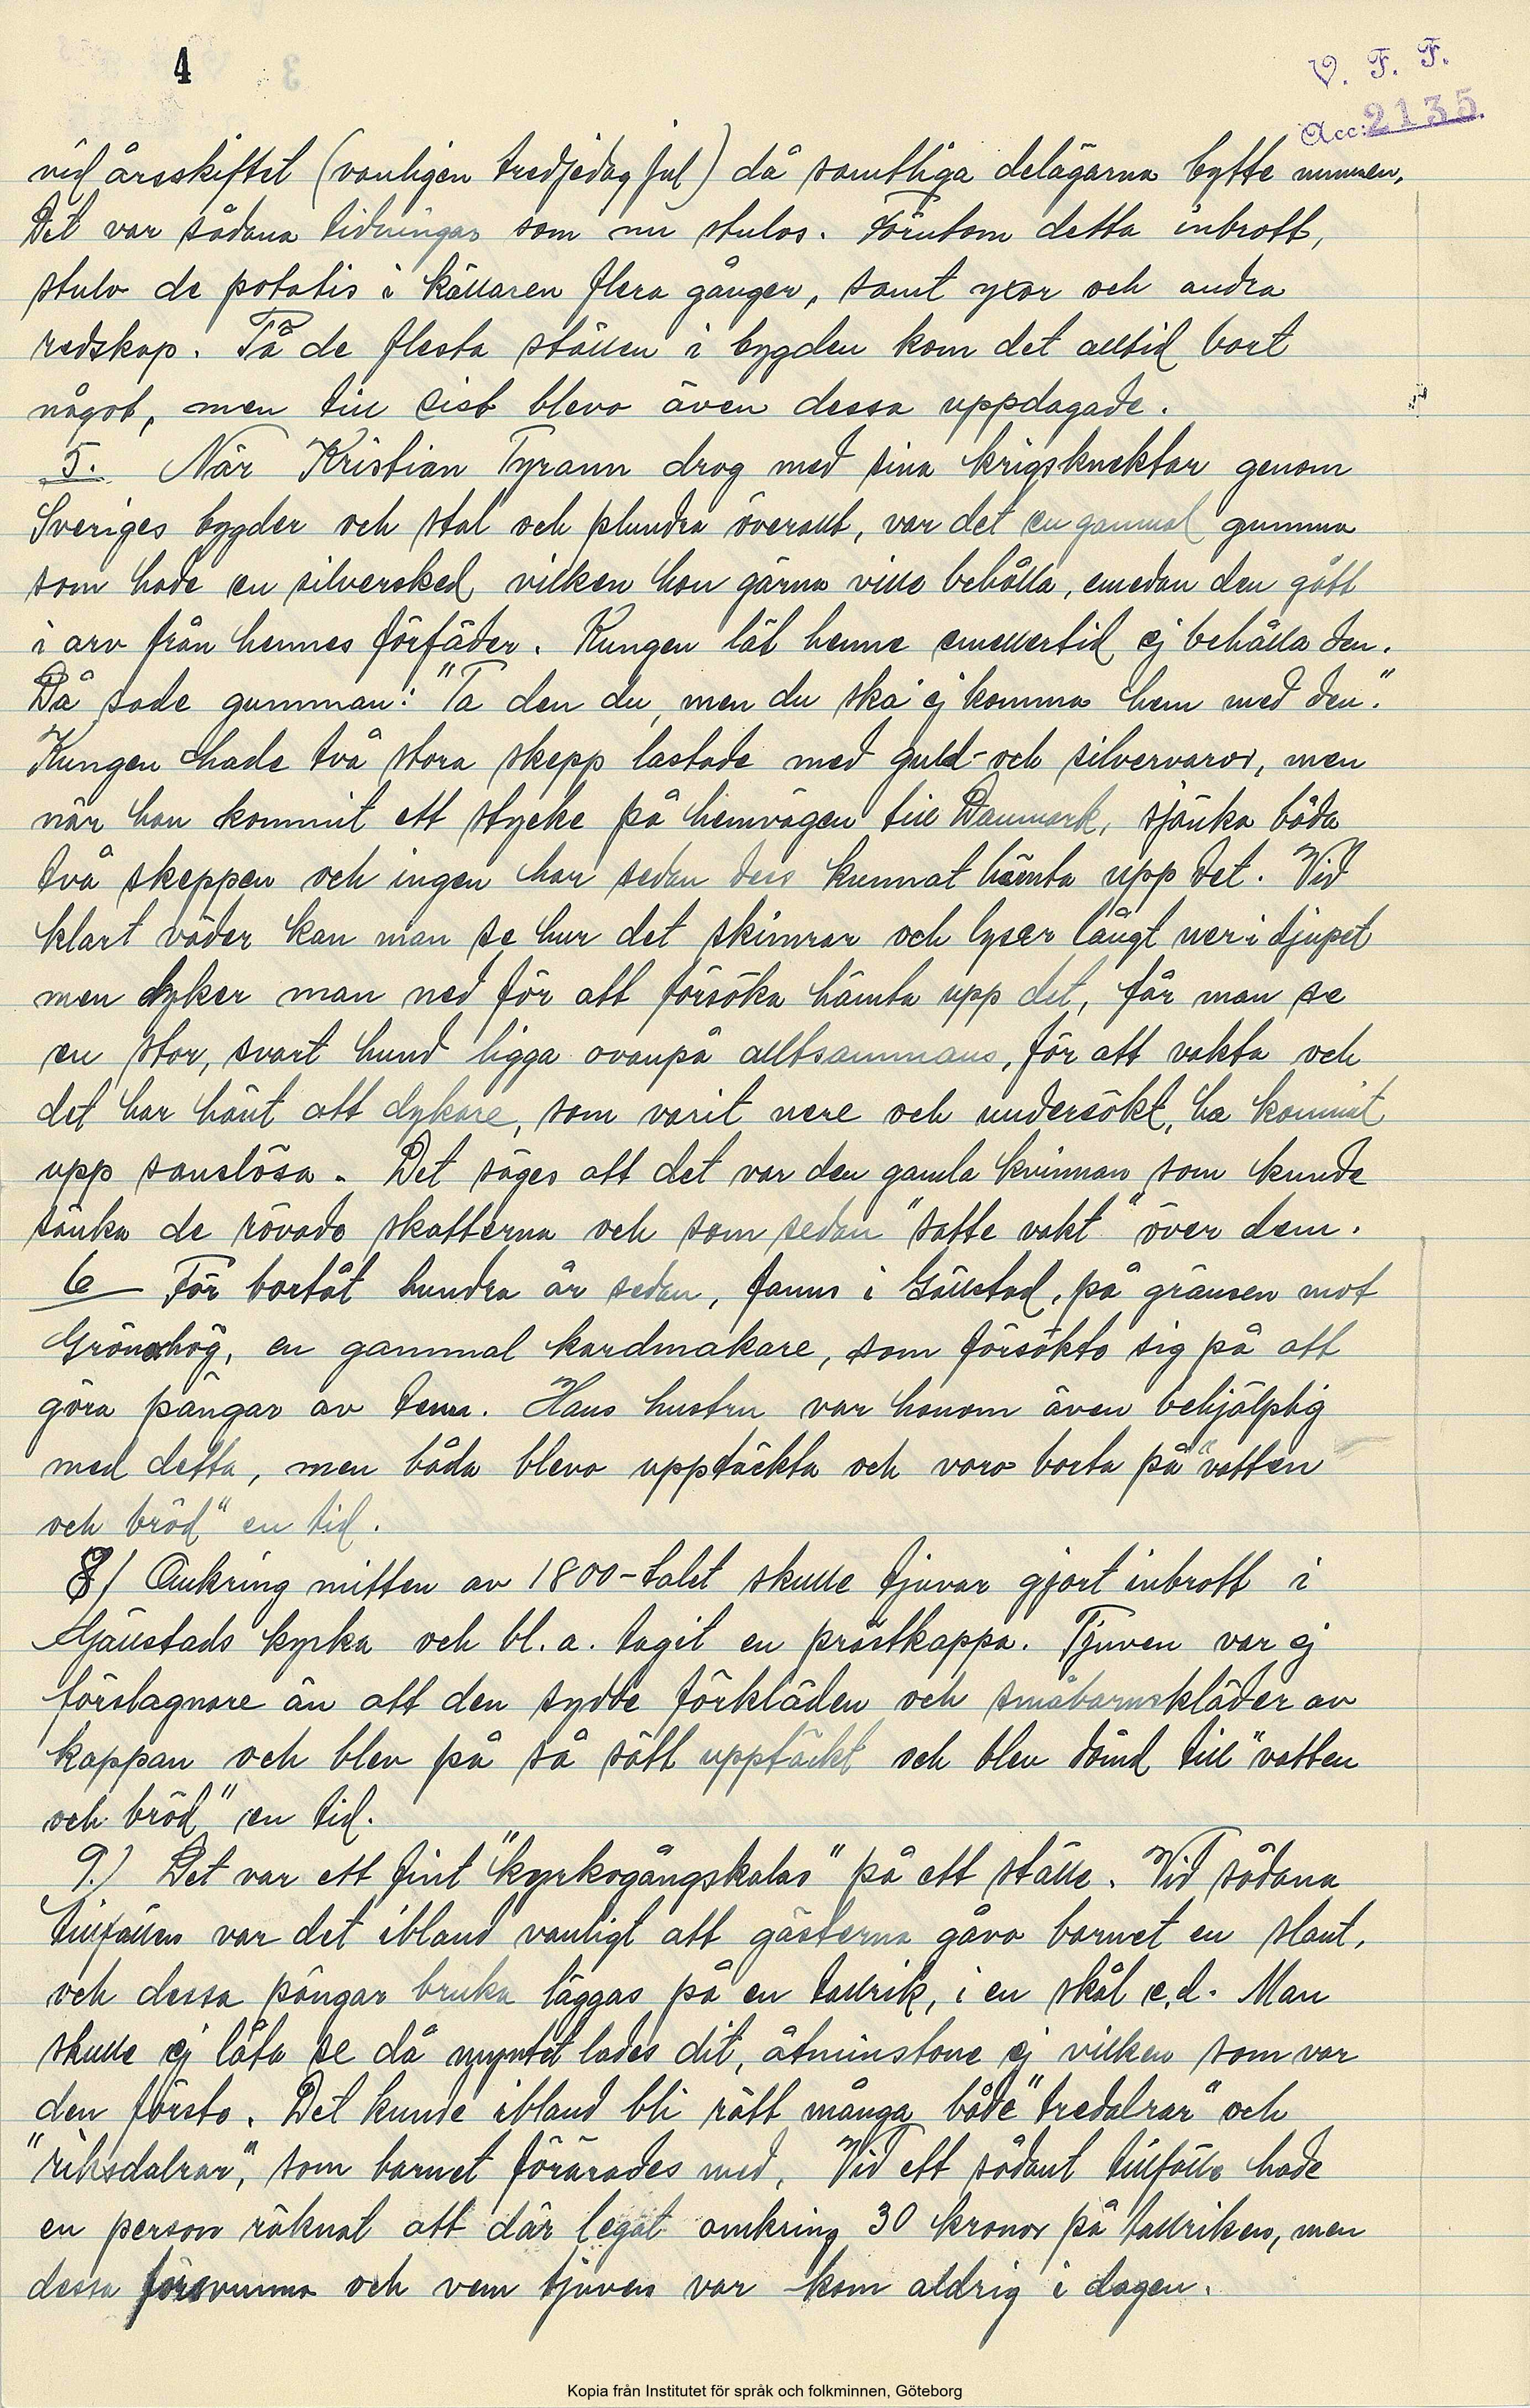 4
V. F. F.
Acc: 2135.
vid årsskiftet (vanligen tredjedag jul) då samtliga delägarna bytte nummer.
Det var sådana tidningar som nu stulos. Förutom detta inbrott,
stulo de potatis i källaren flera gånger, samt yxor och andra
redskap. På de flesta ställen i bygden kom det alltid bort
något, men till sist blevo även dessa uppdagade.
5. När Kristian Tyrann drog med sina krigsknektar genom
Sveriges bygder och stal och plundra överallt, var det en gammal gumma
som hade en silversked vilken hon gärna ville behålla, emedan den gått
i arv från hennes förfäder. Kungen lät henne emellertid ej behålla den.
Då sade gumman: "Ta den du, men du ska ej komma hem med den."
Kungen hade två stora skepp lastade med guld- och silvervaror, men
när han kommit ett stycke på hemvägen till Danmark, sjönko båda
två skeppen och ingen har sedan dess kunnat hämta upp det. Vid
klart väder kan man se hur det skimrar och lyser långt ner i djupet
men dyker man ned för att försöka hämta upp det, får man se
en stor, svart hund ligga ovanpå alltsammans, för att vakta och
det har hänt att dykare, som varit nere och undersökt, ha kommit
upp sanslösa. Det säges att det var den gamla kvinnan som kunde
sänka de rövade skatterna och som sedan "satte vakt" över dem.
6 För bortåt hundra år sedan, fanns i Gällstad, på gränsen mot
Grönahög, en gammal kardmakare, som försökte sig på att
göra pängar av tenn. Hans hustru var honom även behjälplig
med detta, men båda blevo upptäckta och voro borta på "vatten
och bröd" en tid.
8) Omkring mitten av 1800-talet skulle tjuvar gjort inbrott i
Gällstads kyrka och bl. a. tagit en prästkappa. Tjuven var ej
förslagnare än att den sydde förkläden och småbarnskläder av
kappan och blev på så sätt upptäckt och blev dömd till "vatten
och bröd" en tid.
9.) Det var ett fint "kyrkogångskalas" på ett ställe. Vid sådana
tillfällen var det ibland vanligt att gästerna gåvo barnet en slant,
och dessa pängar bruka läggas på en tallrik, i en skål e.d. Man
skulle ej låta se då myntet lades dit, åtminstone ej vilken som var
den första. Det kunde ibland bli rätt många både "tredalrar" och
"riksdalrar", som barnet förärades med. Vid ett sådant tillfälle hade
en person räknat att där legat omkring 30 kronor på tallriken, men
dessa försvunno och vem tjuven var kom aldrig i dagen.
Kopia från Institutet för språk och folkminnen, Göteborg